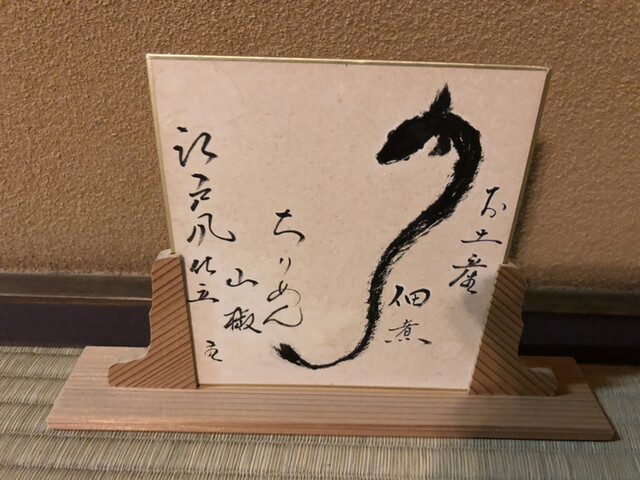 お土産
佃煮
ちりめん
山椒
江戸風仕立